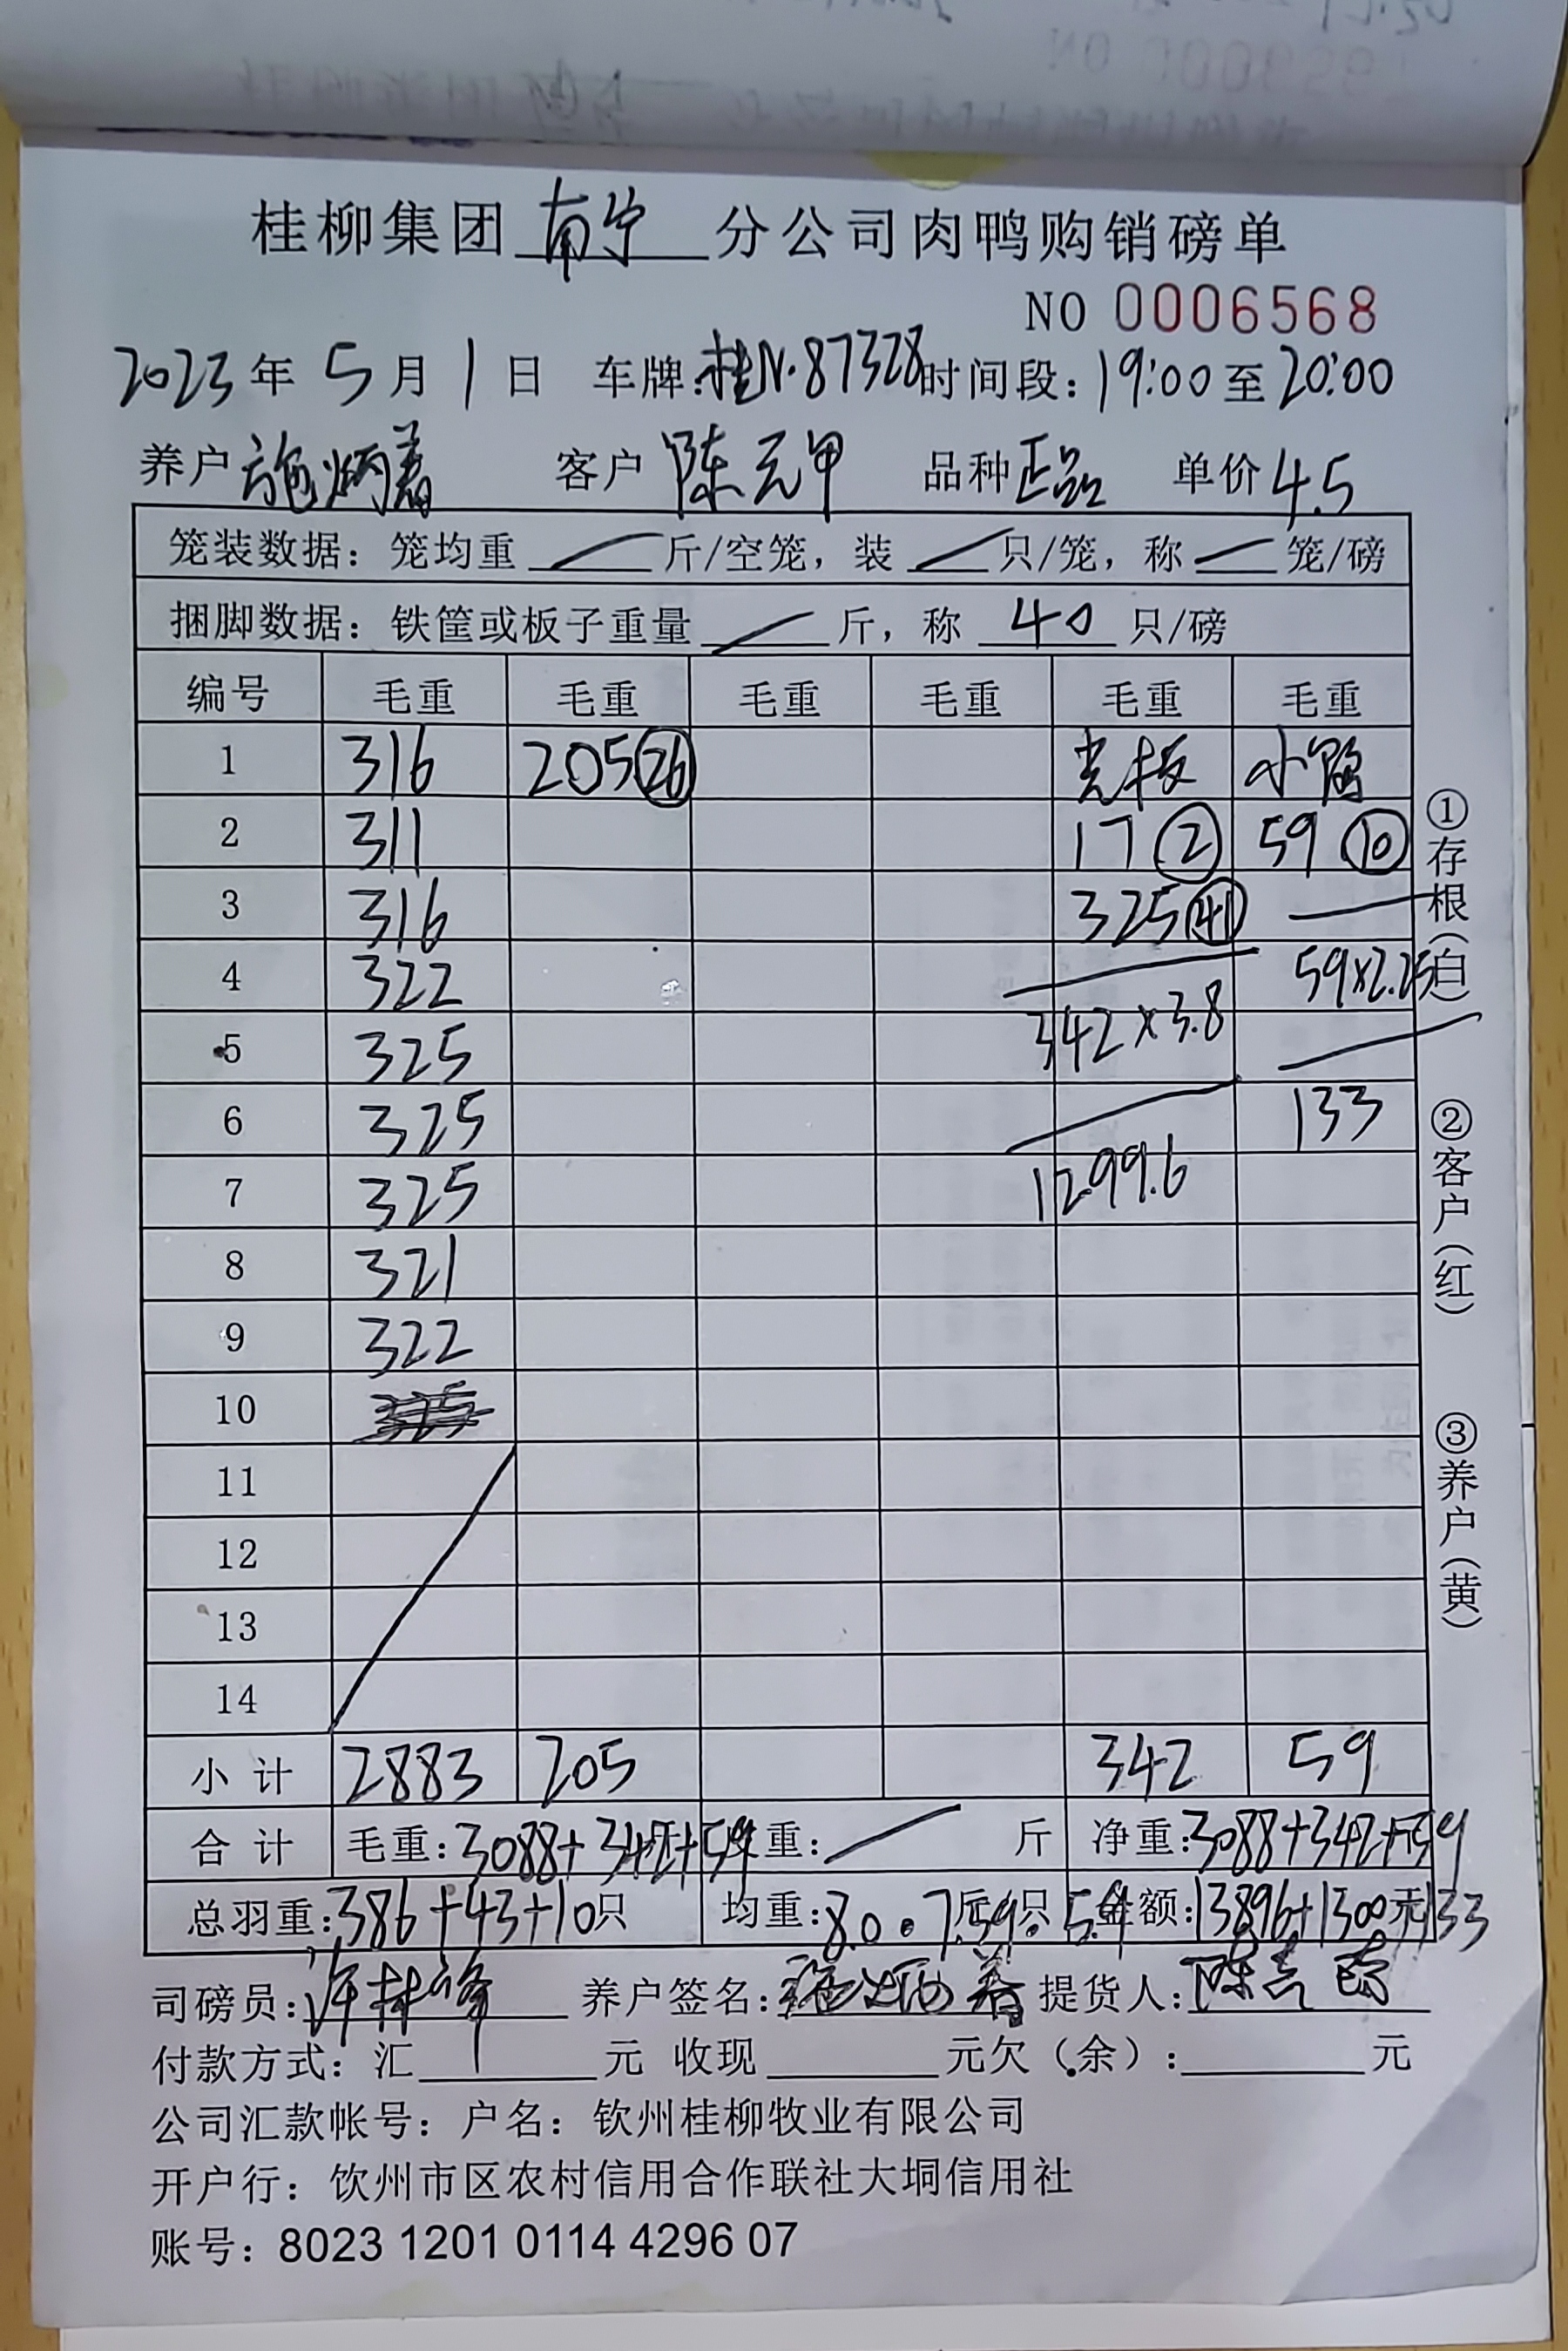 桂柳集团 南宁 分公司肉鸭购销磅单
NO 0006568
2023 年 5 月 1 日 车牌:桂N·87328 时间段:19:00 至 20:00
养户 施炳春 客户 陈元甲 品种 正品 单价 4.5
笼装数据:笼均重 斤/空笼,装 只/笼,称 笼/磅
捆脚数据:铁筐或板子重量 斤,称 40 只/磅
编号 毛重 毛重 毛重 毛重 毛重 毛重
1 316 205 26 光板 小鸭
2 311 17 2 59 10
3 316 325 41
4 322 59×2.25
5 325 342×3.8
6 325 133
7 325 1299.6
8 321
9 322
10
11
12
13
14
小计 2883 205 342 59
合计 毛重:3088+342+59 重: 斤 净重:3088+342+59
总羽重:386+43+10只 均重:8.0·7.59·5.9 斤/只 金额:13896+1300+133 元
司磅员:许林峰 养户签名:施炳春 提货人:
付款方式:汇 元 收现 元欠(余): 元
公司汇款帐号:户名:钦州桂柳牧业有限公司
开户行:饮州市区农村信用合作联社大垌信用社
账号:8023 1201 0114 4296 07
①存根(白)
②客户(红)
③养户(黄)